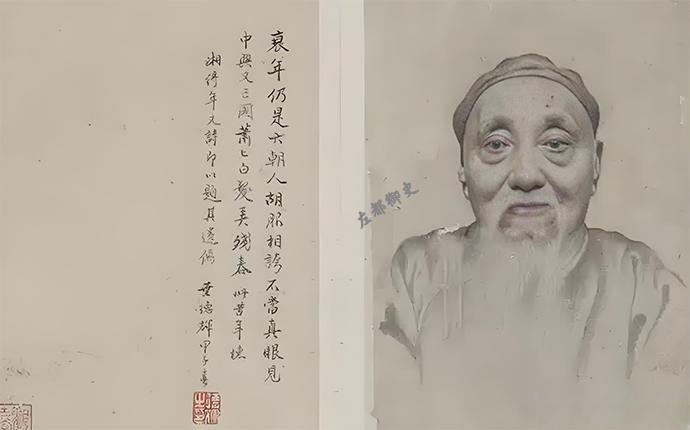 衰年仍是六朝人胡服相誇不當真眼見
中興又亡國蕭匕白髮殘春
湘綺年丈詩即以題其遺像 葉德輝甲子春
左都御史